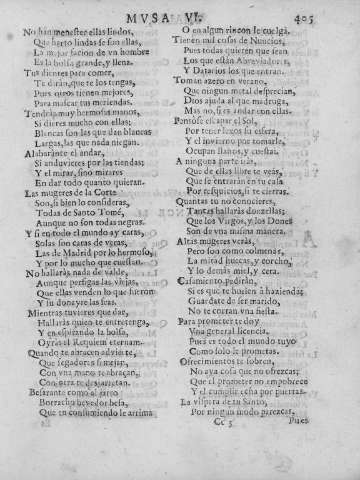 MVSA VI. 405
No han menester ellas lindos,
Que harto lindas se son ellas,
La mejor facion de vn hombre
Es la bolsa grande, y llena.
Tus dientes para comer,
Te diràn, que te los tengas,
Pues otros tienen mejores,
Para mascar tus meriendas.
Tendràs muy hermosas manos,
Si dieres mucho con ellas;
Blancas son las que dan blancas
Largas, las que nada niegan.
Alabaràente el andar,
Si anduvieres por las tiendas;
Y el mirar, sino mirares
En dar todo quanto quieran.
Las mugeres de la Corte
Son, si bien lo consideras,
Todas de Santo Tomè,
Aunque no son todas negras.
Y si en todo el mundo ay caras,
Solas son caras de veras,
Las de Madrid por lo hermoso,
Y por lo mucho que cuestan.
No hallaràs nada de valde,
Aunque persigas las viejas,
Que ellas venden lo que fueron
Y su donayre las feas.
Mientras tuvieres que dar,
Hallaràs quien te entretenga,
Y en espirando la bolsa,
Oyràs el Requiem eternam.
Quando te abracen advierte,
Que segadores semejan,
Con vna mano te abraçan,
Con otra te desjarretan.
Besarànte como al jarro
Borracho bevedor besa,
Que en consumiendo le arrima
O en algun rincon le cuelga.
Tienen mil cosas de Nuncios,
Pues todas quieren que sean
Los que estàn Abreviadores,
Y Datarios los que entran.
Toman azero en verano,
Que ningun metal desprecian,
Dios ayuda al que madruga,
Mas no, si es andar con ellas.
Pensose escapar el Sol,
Por tener lexos su esfera,
Y el invierno por tomarle,
Ocupan llanos, y cuestas.
A ninguna parte iràs,
Que de ellas libre te veàs,
Que se entraràn en tu casa
Por resquicios, si te cierras.
Quantas tu no conocieres,
Tantas hallaràs donzellas;
Que los Virgos, y los Dones
Son de vna misma manera.
Altas mugeres veràs,
Pero son como colmenas,
La mitad huecas, y corcho,
Y lo demàs miel, y cera.
Casamiento pediràn,
Si es que te huelen à hazienda;
Guardate de ser marido,
No te corran vna fiesta.
Para prometer te doy
Vna general licencia,
Pues es todo el mundo tuyo
Como solo le prometas.
Ofrecimientos te sobren,
No aya cosa que no ofrezcas;
Que el prometer no empobrece
Y el cumplir echa por puertas.
La vispera de tu Santo,
Por ningun modo parezcas,
Cc 5 Pues